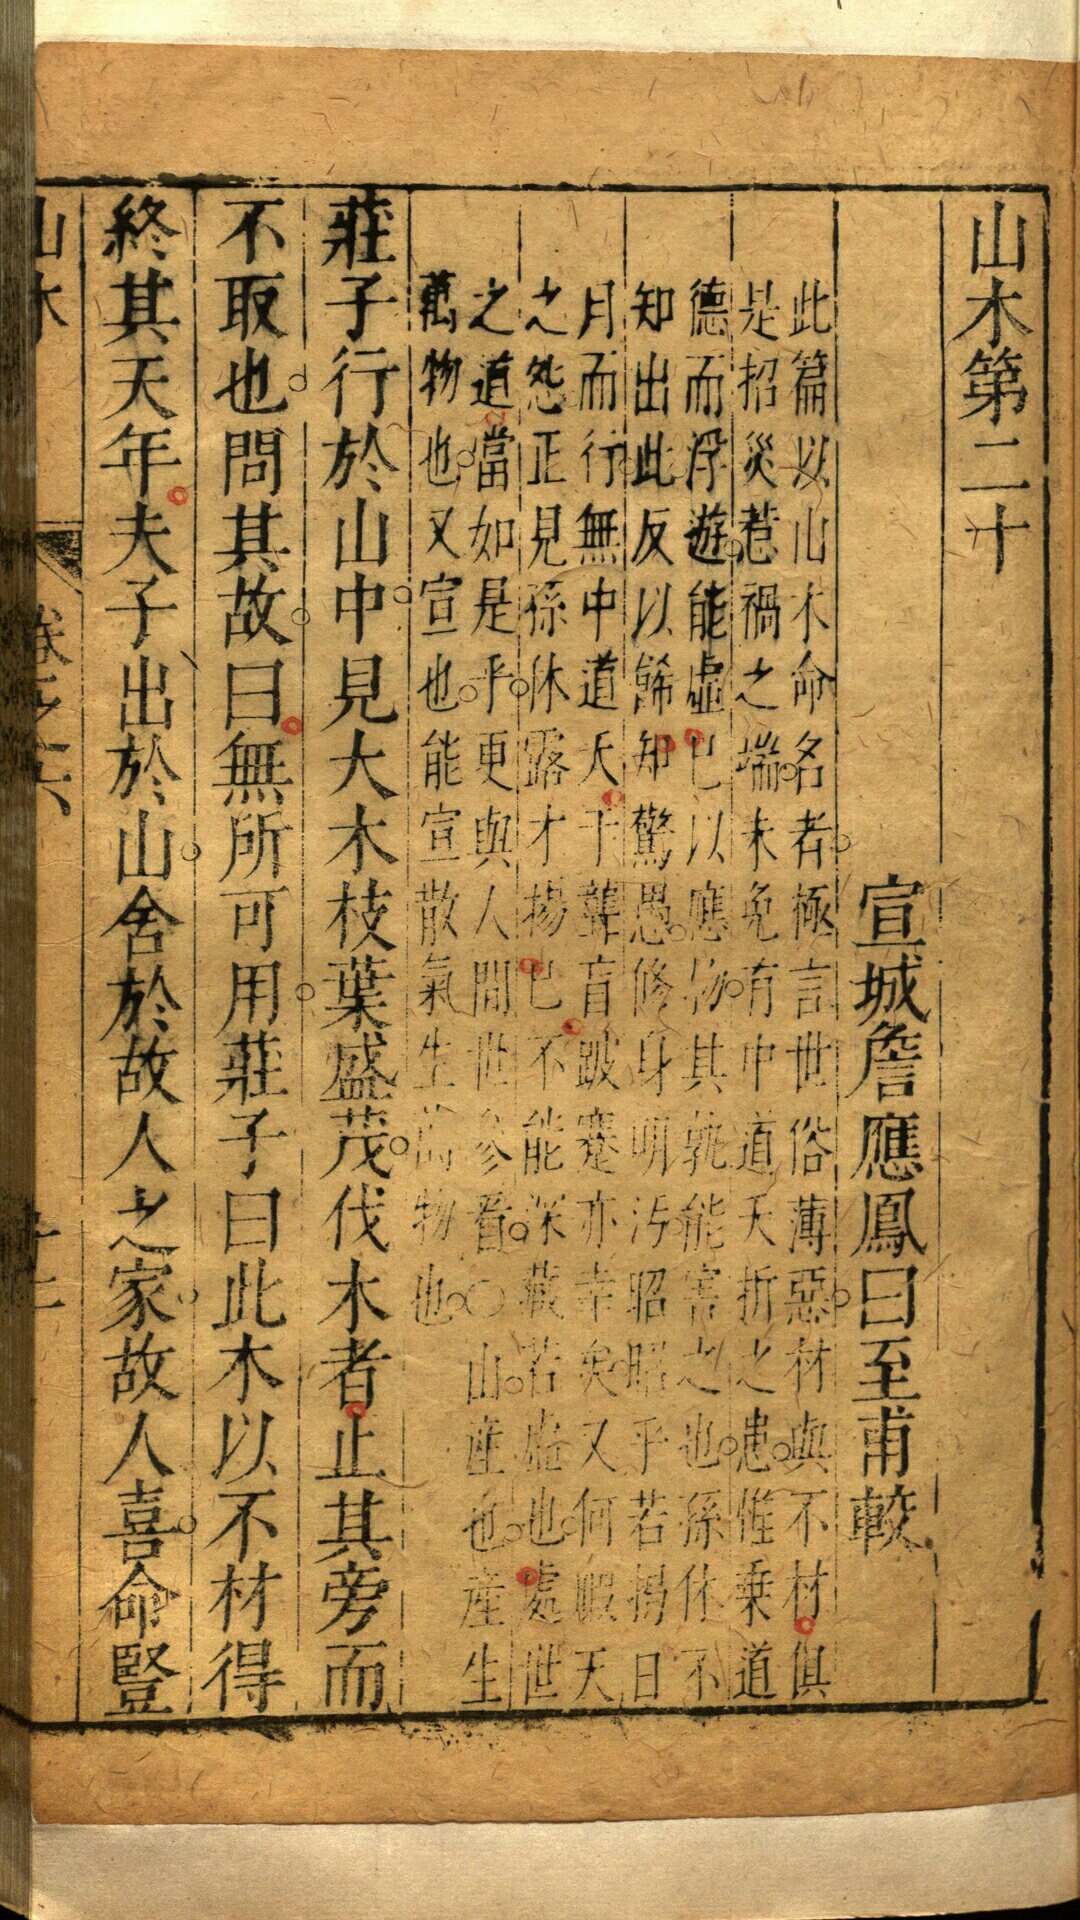 山木第二十
宣城詹應鳳曰至甫較
此篇以山木命名者極言世俗薄惡材與不材俱
是招災惹禍之端未免有中道夭折之患惟乗道
德而浮遊能虛己以應物其孰能害之也孫休不
知出此反以餙知驚愚修身明汚昭昭乎若揭日
月而行無中道夭于聾盲跛蹇亦幸矣又何暇天
之怨正見孫休露才揚己不能深藏若虛也處世
之道當如是乎更與人間世參看〇山産也産生
萬物也又宣也能宣散氣生萬物也
莊子行於山中見大木枝葉盛茂伐木者止其旁而
不取也問其故曰無所可用莊子曰此木以不材得
終其天年夫子出於山舍於故人之家故人喜命豎
山木
卷之六